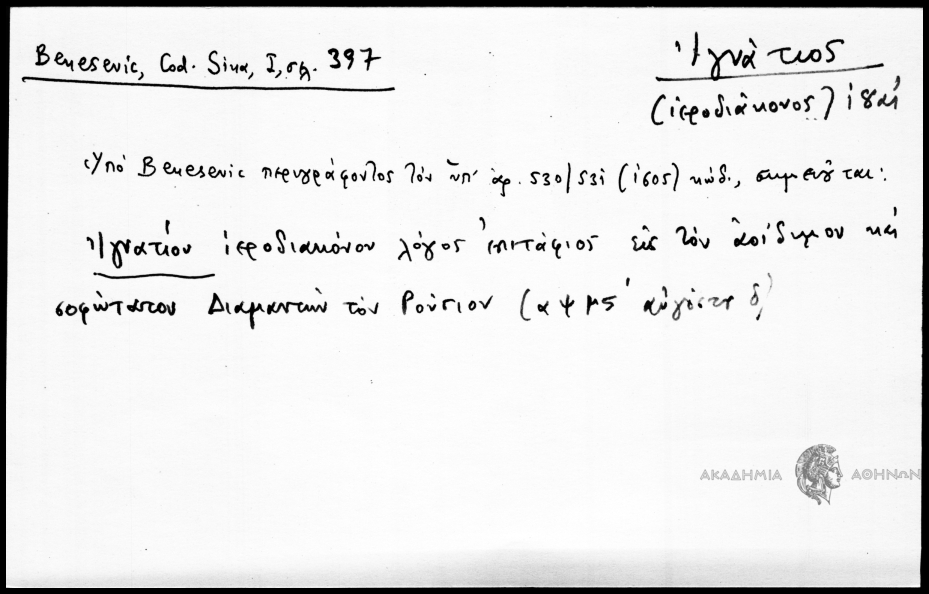 Benesevic, Cod. Sina, I, σελ. 397
Ἰγνάτιος
(ἱεροδιάκονος)
Ὑπὸ Benesevic περιγράφοντος τὸν ὑπ' ἀρ. 530/531 (1605) κώδ., σημειοῦται:
Ἰγνατίου ἱεροδιακόνου λόγος ἐπιτάφιος εἰς τὸν ἀοίδιμον καὶ
σοφώτατον Διαμαντῆν τὸν Ρούσιον (αψμς' αὐγούστῳ δ)
ΑΚΑΔΗΜΙΑ ΑΘΗΝΩΝ